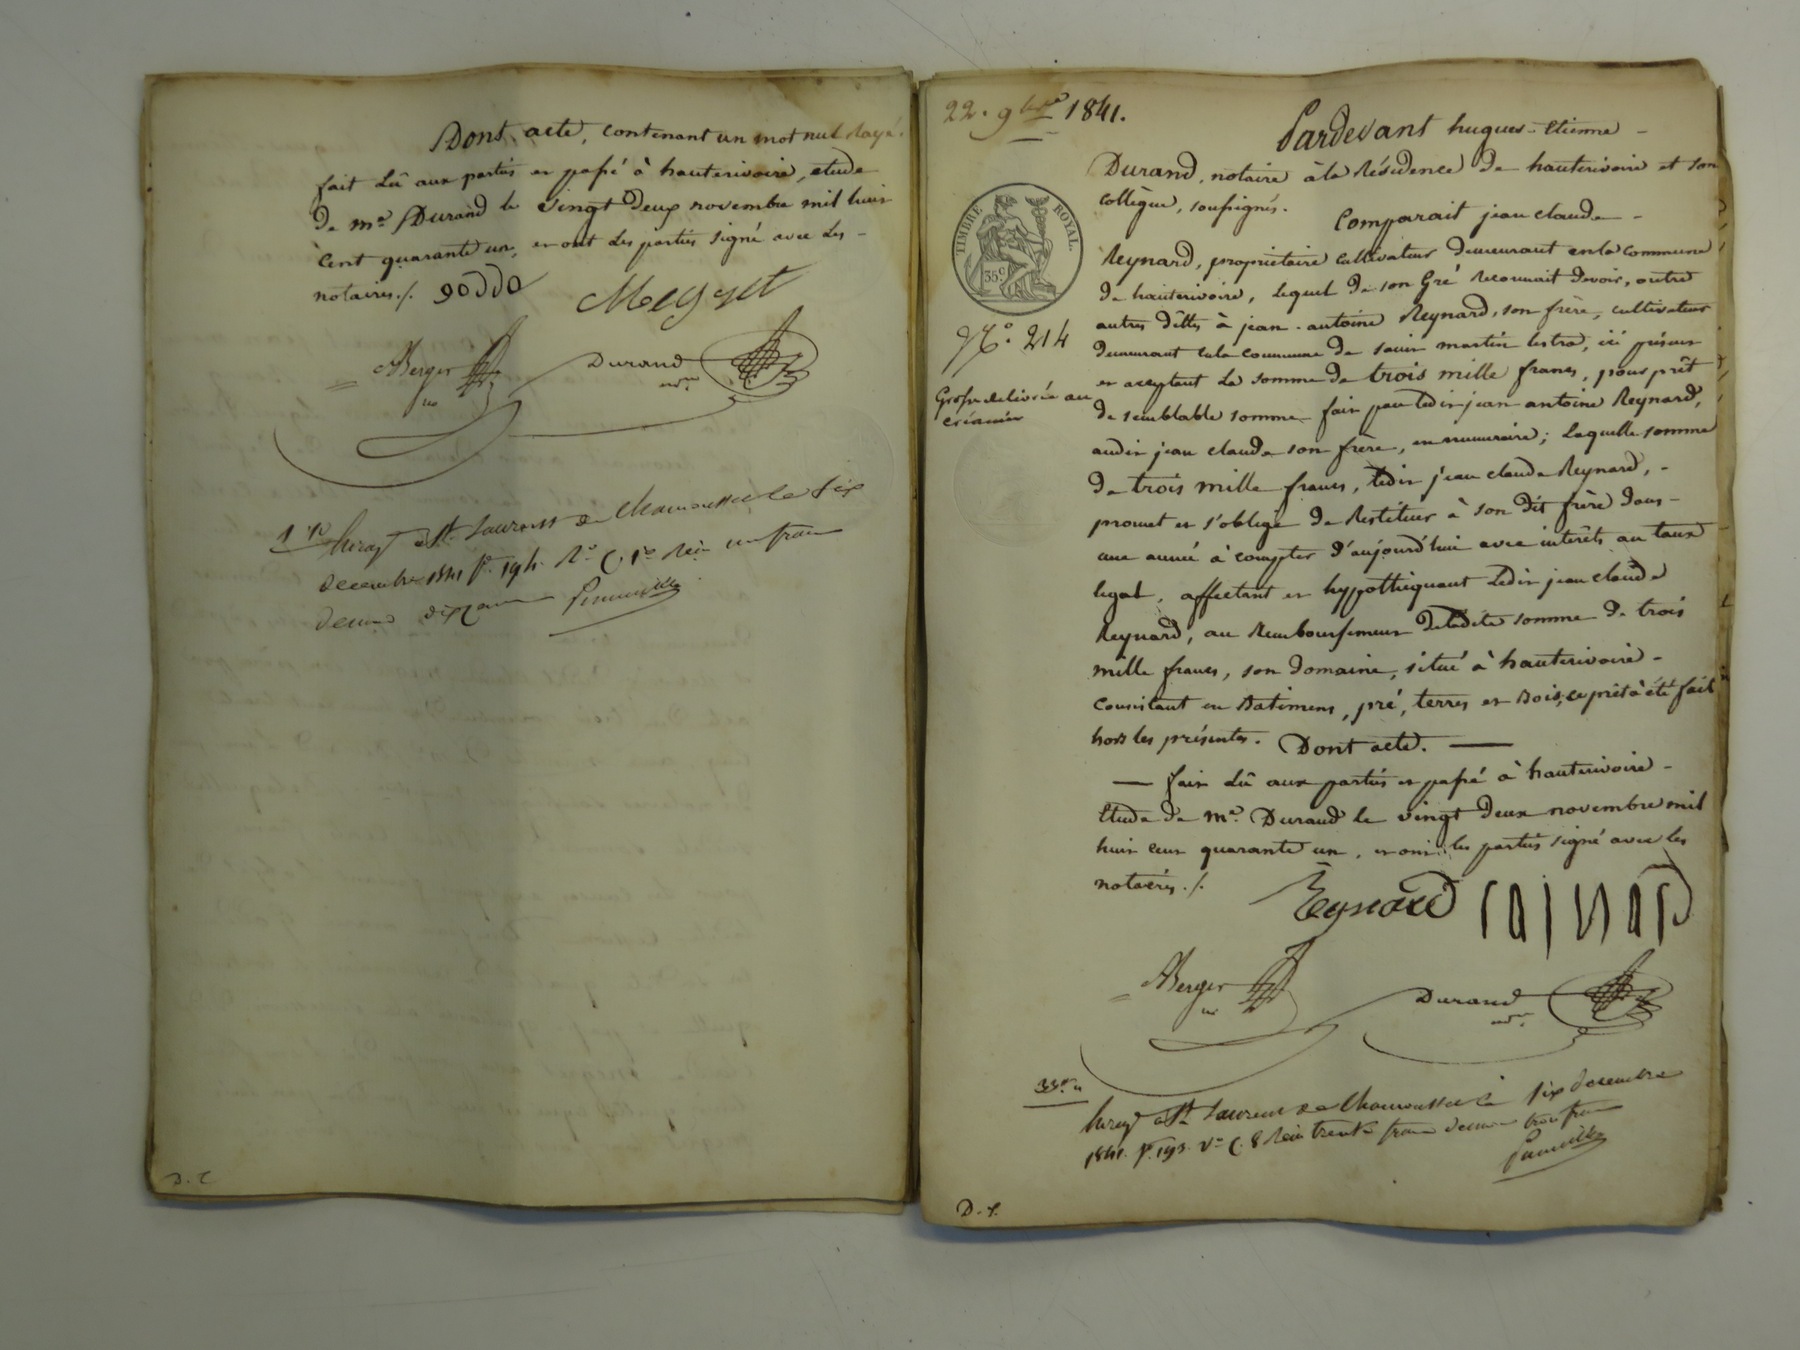 Dont acte, contenant un mot nul rayé.
fait Lû aux parties et passé à hauterivoire, etude
de me. Durand le vingt deux novembre mil huit
cent quarante un, et ont les parties signé avec les -
notaires./.
Berger
Durand
nore.
à St. Laurent de Chamousset le six
decembre 1841 fo. 194. Ro. C. 1re. Reçu un franc
decime dix cent
D. C
22. 9bre 1841.
Pardevant hugues-Etienne -
Durand, notaire à la Résidence de hauterivoire et son
collègue, soussignés. Comparait jean claude -
Reynard, propriétaire cultivateur demeurant en la commune
de hauterivoire, lequel de son Gré Reconnait devoir, outre
autres dêttes à jean-antoine Reynard, son frère, cultivateur
demeurant en la commune de saint martin lestra, ici présent
et acceptant la somme de trois mille francs, pour prêt
de semblable somme fait par ledit jean antoine Reynard,
audit jean claude son frère, en numeraire; Laquelle somme
de trois mille francs, ledit jean claude Reynard, -
promet et s'oblige de Restituer à son dit frère dans -
une année à compter d'aujourd'hui avec intérêts au taux
legal, affectant et hypothéquant Ledit jean claude
Reynard, au Remboursement deladite somme de trois
mille francs, son domaine, situé à hauterivoire -
Consistant en Batimens, pré, terres et Bois, ce prêt à été fait
hors les présentes. Dont acte. —
— fait Lû aux parties et passé à hauterivoire -
Etude de me. Durand le vingt deux novembre mil
huit cent quarante un, et ont les parties signé avec les
notaires./.
TIMBRE ROYAL.
35c
No. 214
Grosse delivrée au
créancier
Reynard
Berger
Durand
nore.
à St Laurent de Chamousset le six decembre
1841. fo. 193. Vo. C. 8 Reçu trente francs decime trois francs
D. S.